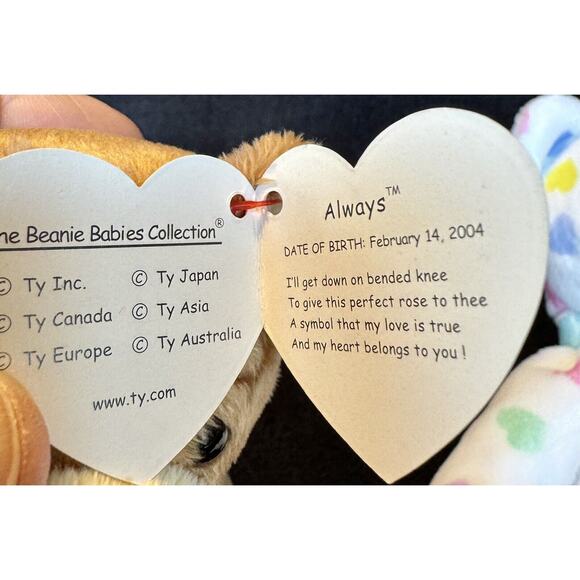 he Beanie Babies Collection®
© Ty Inc. © Ty Japan
© Ty Canada © Ty Asia
© Ty Europe © Ty Australia
www.ty.com
Always™
DATE OF BIRTH: February 14, 2004
I'll get down on bended knee
To give this perfect rose to thee
A symbol that my love is true
And my heart belongs to you !